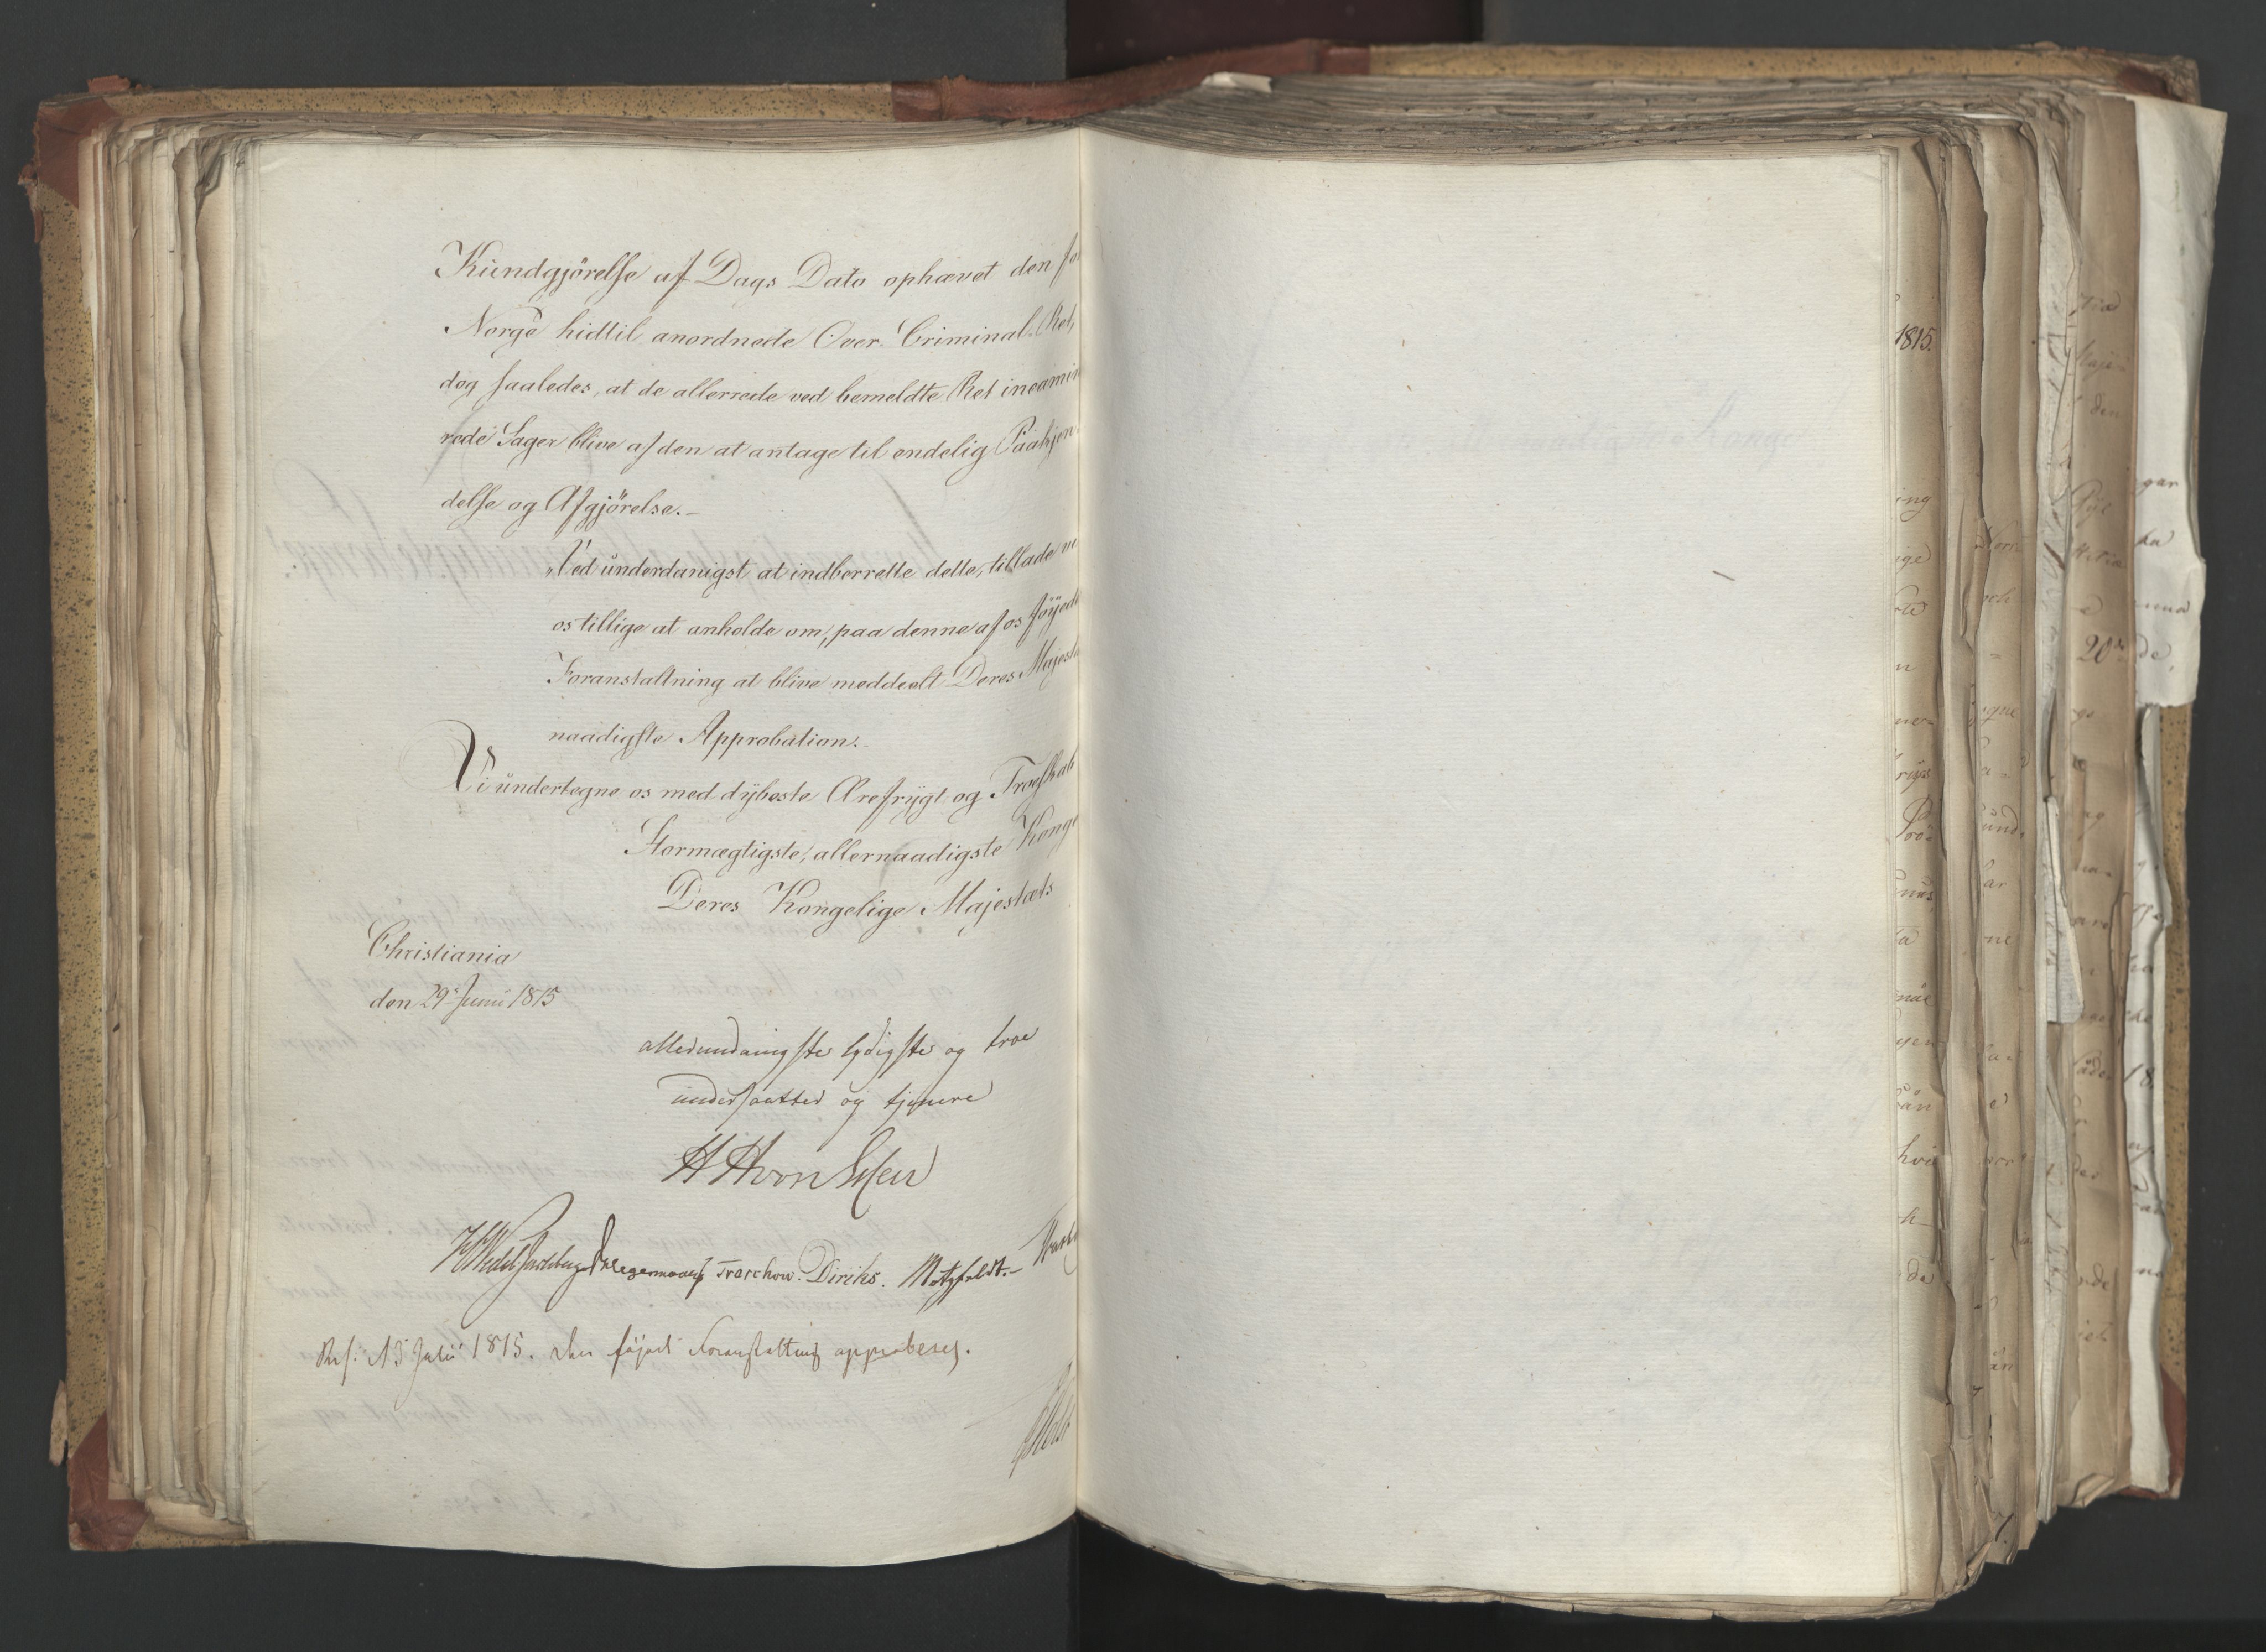 Kundgjörelse af Dags Dato ophævet den
Norge hidtil anordnede Over-Criminal-Ret,
dog saaledes, at de allerrede ved bemeldte Ret incamin
rede Sager blive af den at antage til endelig Paakjen
delse og Afgjörelse.-
"Ved underdanigst at indberrette dette, tillade vi
os tillige at anholde om, paa denne af os föyede
Foranstaltning at blive meddeelt Deres Majest
naadigste Approbation.-
Vi undertegne os med dybeste Ærefrygt og Troeskab
Stormægtigste, allernaadigste Konge
Deres Kongelige Majestæts
Christiania
den 29. Junii 1815
allerunderdanigste lydigste og troe
undersaatter og tjenere
H H von Essen
HWedel Jarlsberg Krieg Treschow. Diriks. Motzfeldt.-
Res: Julii 1815. Den föjede Foranstaltning approberes.
Holst
1815.
ing
ige
20de